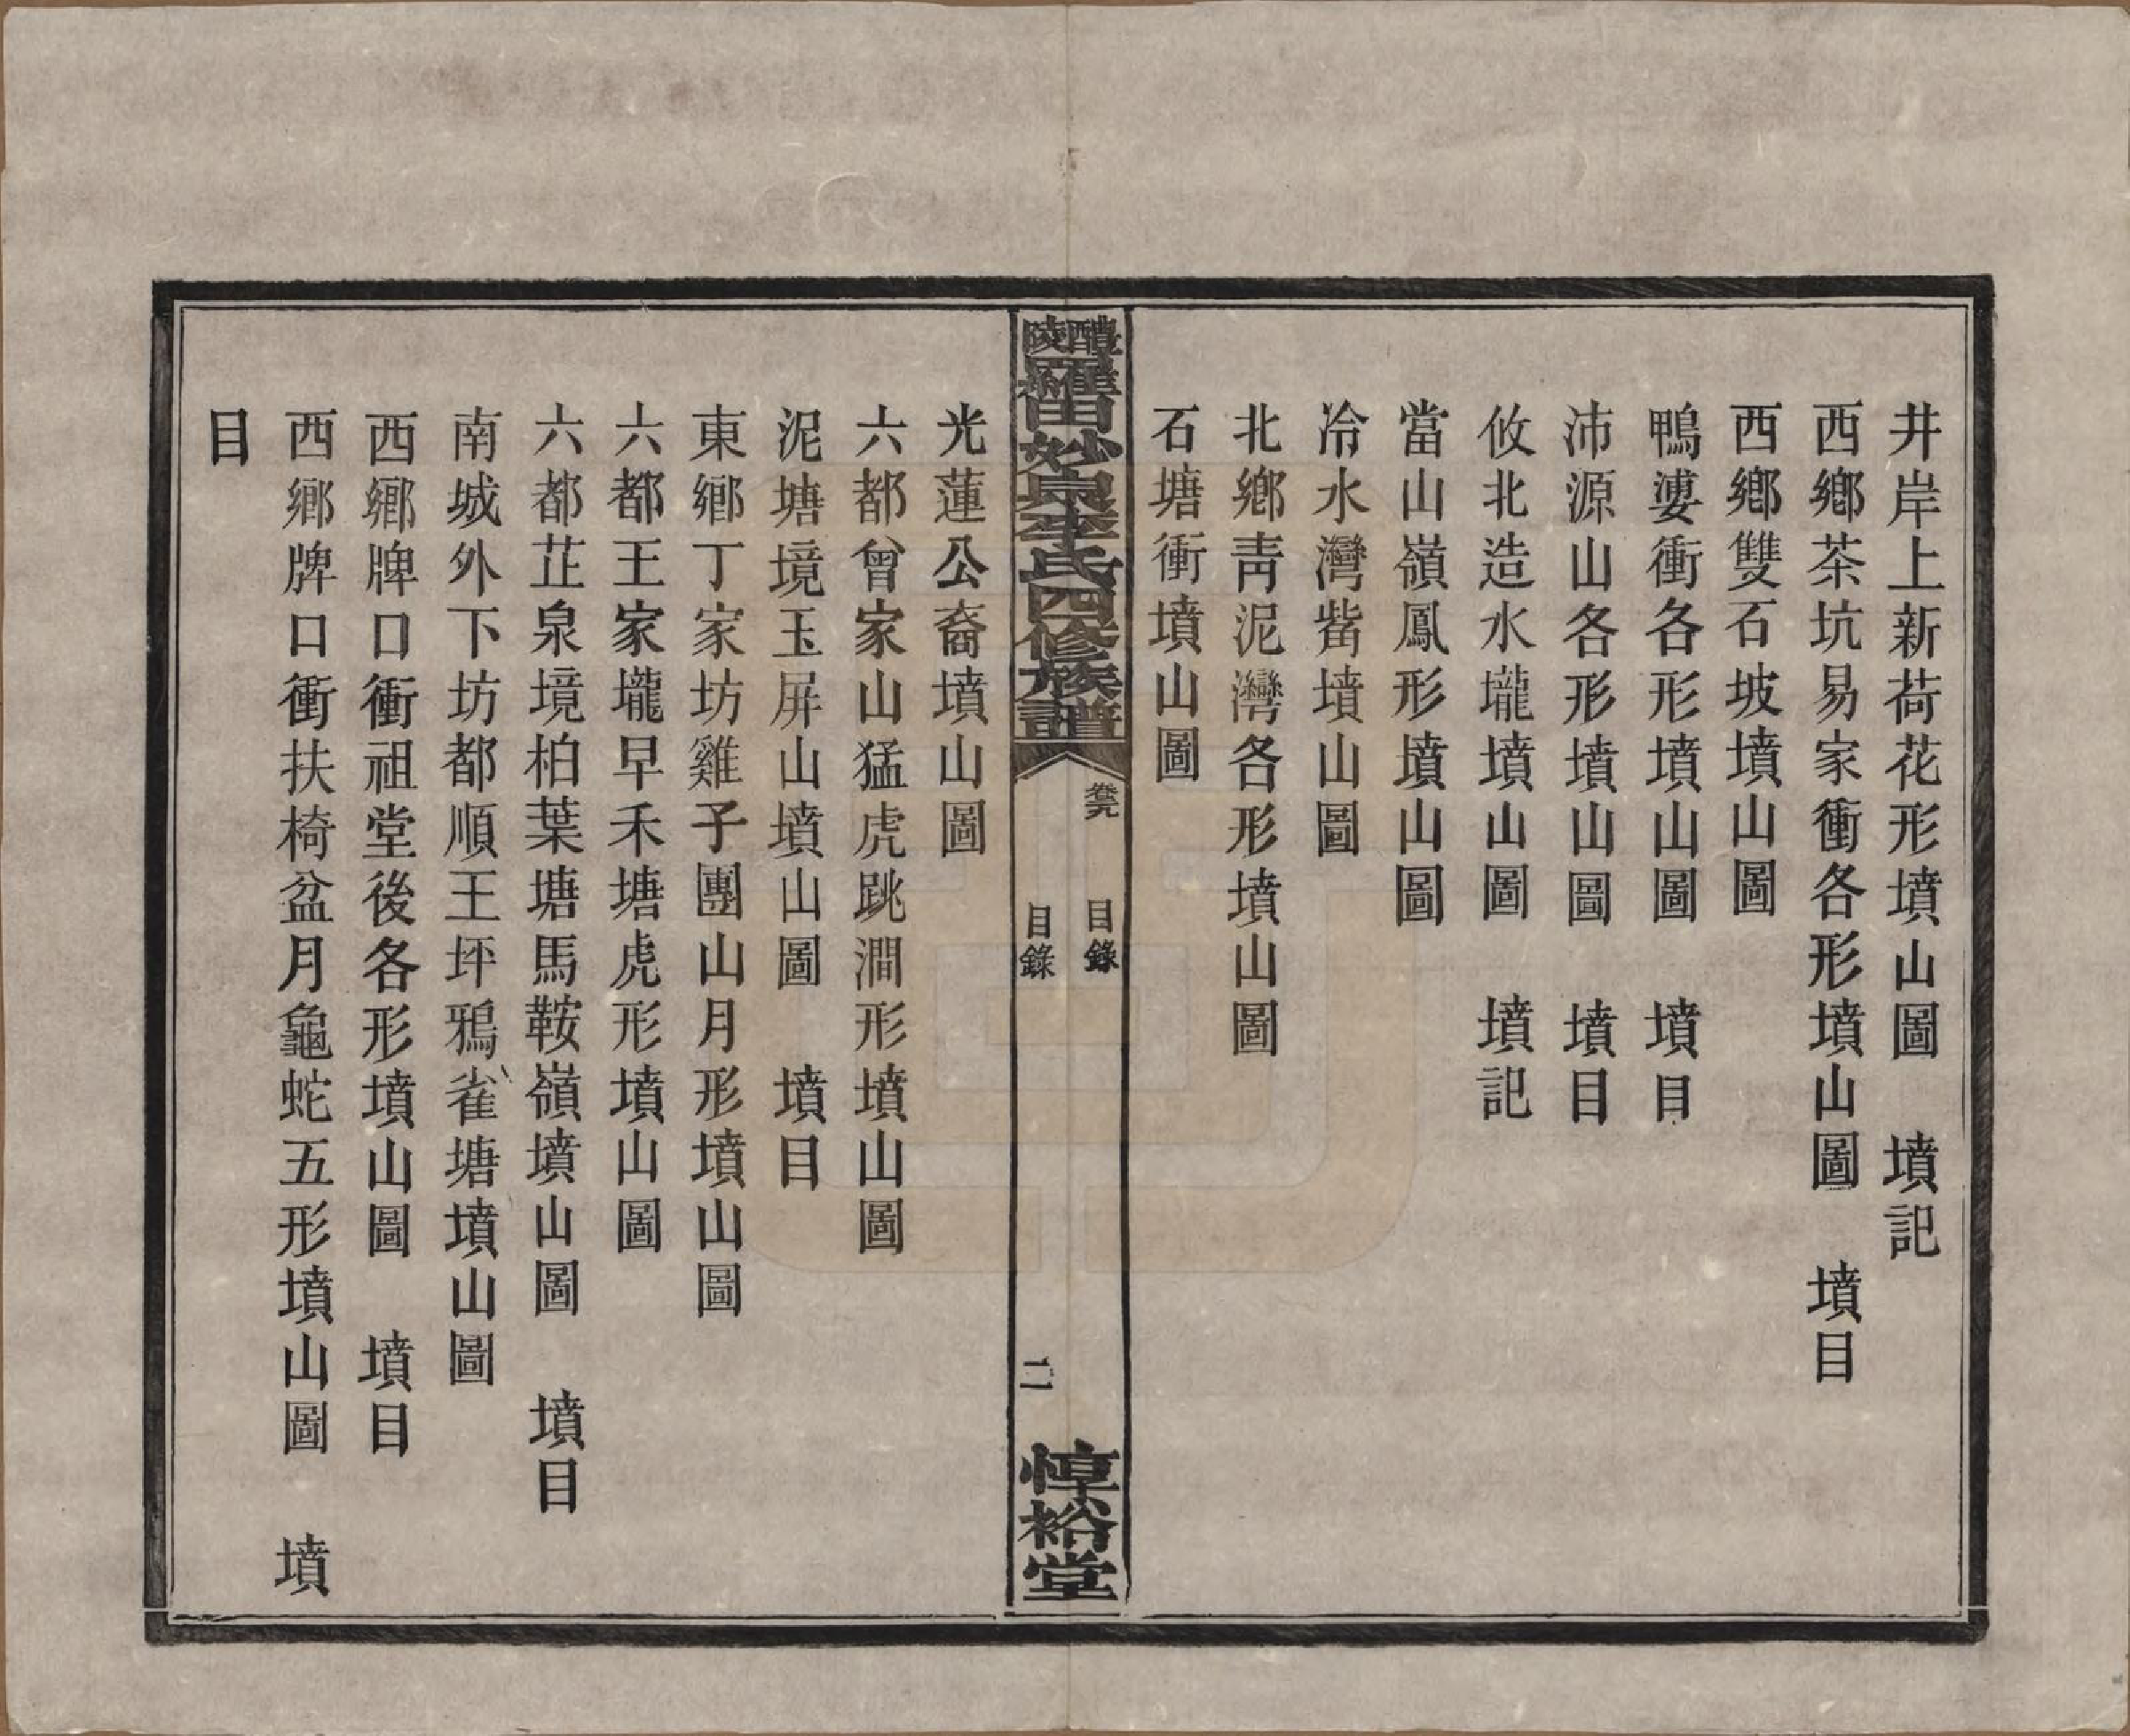 井岸上新荷花形墳山圖　墳記
西鄉茶坑易家衝各形墳山圖　墳目
西鄉雙石坡墳山圖
鴨婁衝各形墳山圖　墳目
沛源山各形墳山圖　墳目
攸北造水壠墳山圖　墳記
當山嶺鳳形墳山圖
冷水灣觜墳山圖
北鄉靑泥灣各形墳山圖
石塘衝墳山圖
醴陵羅田妙泉李氏四修族譜
卷　目錄
目錄　二
惇裕堂
光蓮公裔墳山圖
六都曾家山猛虎跳澗形墳山圖
泥塘境玉屏山墳山圖　墳目
東鄉丁家坊雞子團山月形墳山圖
六都王家壠早禾塘虎形墳山圖
六都芷泉境柏葉塘馬鞍嶺墳山圖　墳目
南城外下坊都順王坪鴉雀塘墳山圖
西鄉牌口衝祖堂後各形墳山圖　墳目
西鄉牌口衝扶椅盆月龜蛇五形墳山圖　墳
目